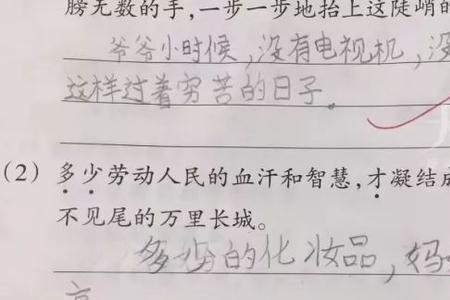 膀无数的手，一步一步地抬上这陡峭的
爷爷小时候，没有电视机，没
这样过着穷苦的日子。
（2）多少劳动人民的血汗和智慧，才凝结成
不见尾的万里长城。
多少的化妆品，妈
亮